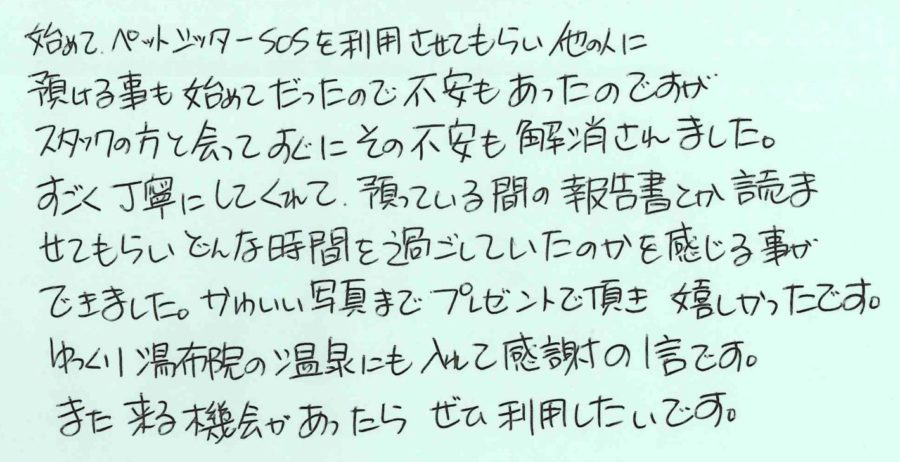 始めて、ペットシッターSOSを利用させてもらい他の人に
預ける事も始めてだったので不安もあったのですが
スタッフの方と会ってすぐにその不安も解消されました。
すごく丁寧にしてくれて、預っている間の報告書とか読ま
せてもらいどんな時間を過ごしていたのかを感じる事が
できました。かわいい写真までプレゼントで頂き 嬉しかったです。
ゆっくり湯布院の温泉にも入れて感謝の1言です。
また来る機会があったら ぜひ利用したいです。